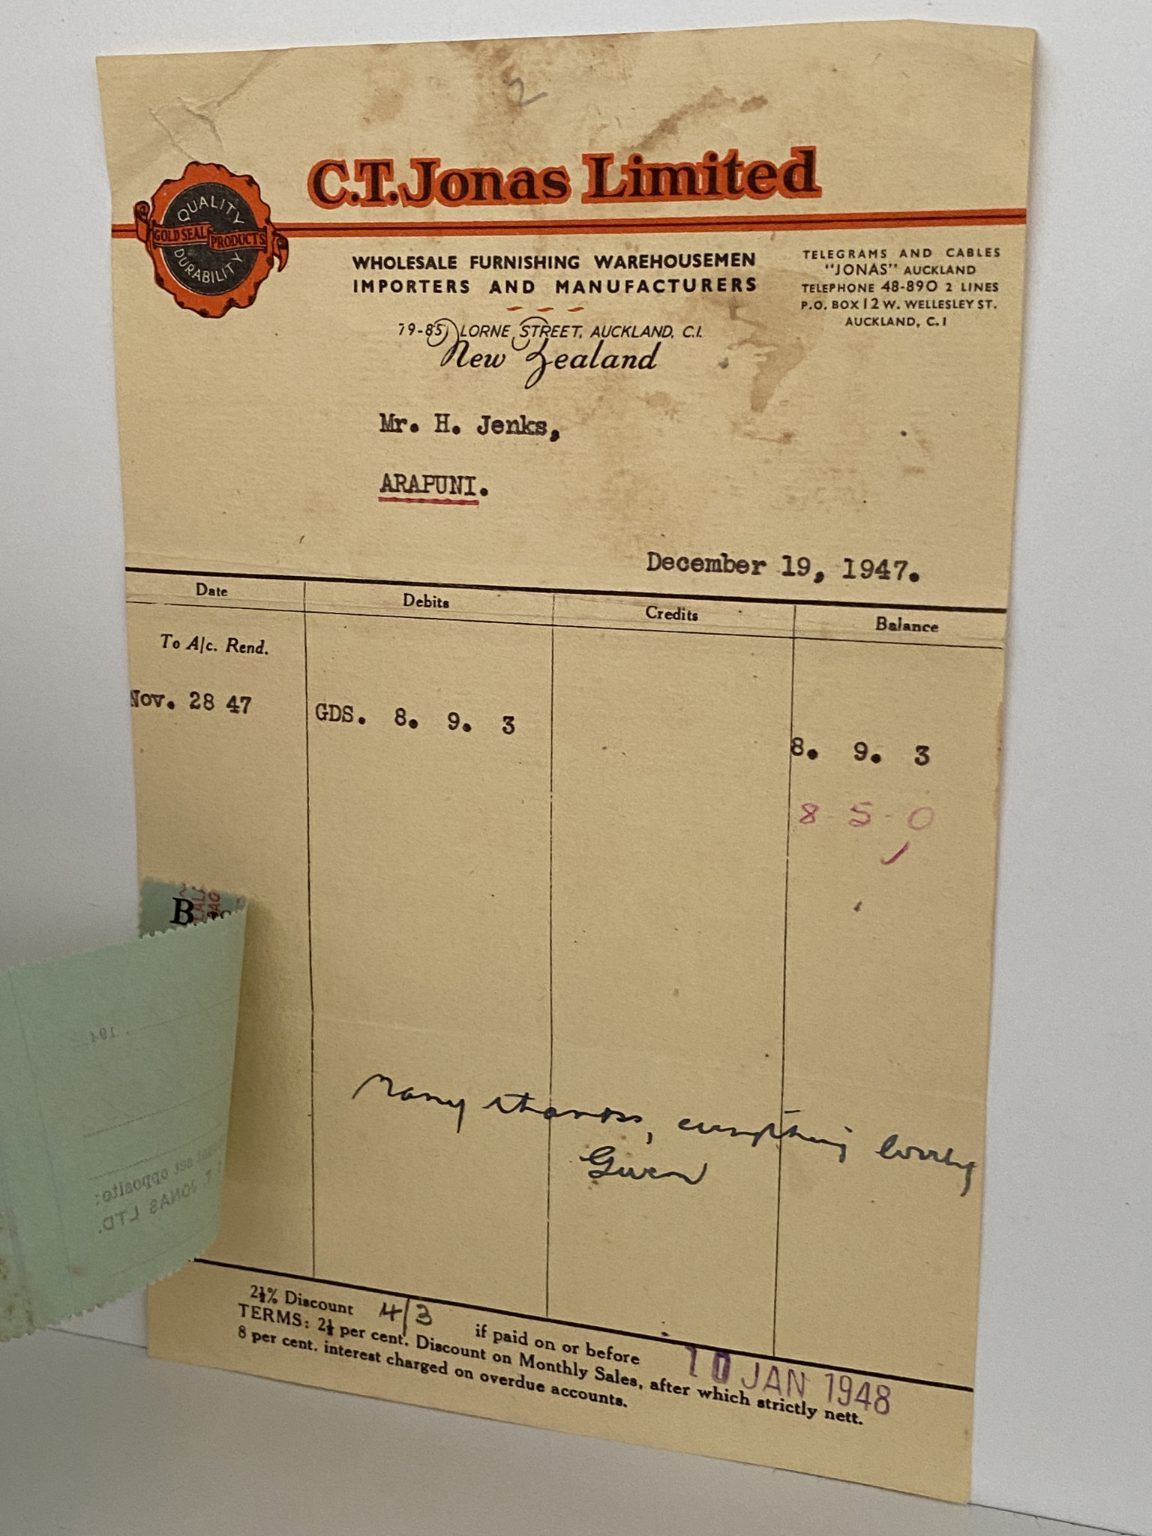 2
C.T. Jonas Limited
QUALITY
GOLD SEAL PRODUCTS
DURABILITY
WHOLESALE FURNISHING WAREHOUSEMEN
IMPORTERS AND MANUFACTURERS
TELEGRAMS AND CABLES
"JONAS" AUCKLAND
TELEPHONE 48-890 2 LINES
P.O. BOX 12 W. WELLESLEY ST.
AUCKLAND, C.1
79-85 LORNE STREET, AUCKLAND, C.1.
New Zealand
Mr. H. Jenks,
ARAPUNI.
December 19, 1947.
Date Debits Credits Balance
To A/c. Rend.
Nov. 28 47 GDS. 8. 9. 3
8. 9. 3
8 - 5 - 0
B
194
opposite:
JONAS LTD.
Many thanks, everything lovely
Gwen
2½% Discount 4/3 if paid on or before 10 JAN 1948
TERMS: 2½ per cent. Discount on Monthly Sales, after which strictly nett.
8 per cent. interest charged on overdue accounts.